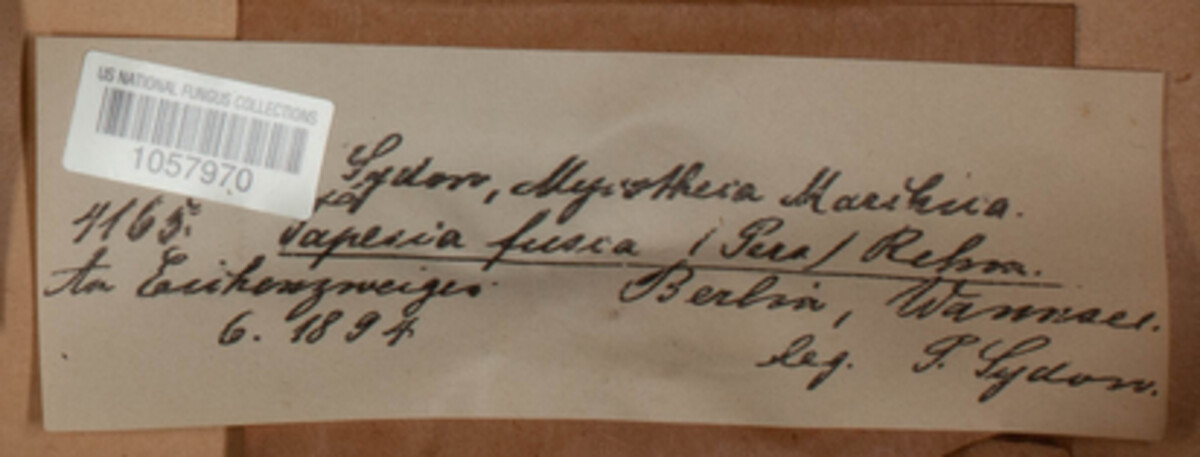 US NATIONAL FUNGUS COLLECTIONS
1057970
Sydow, Mycotheca Marchica.
4165. Tapesia fusca (Pers) Rehm.
An Eichenzweigen. Berlin, Wannsee.
6. 1894
leg. P. Sydow.